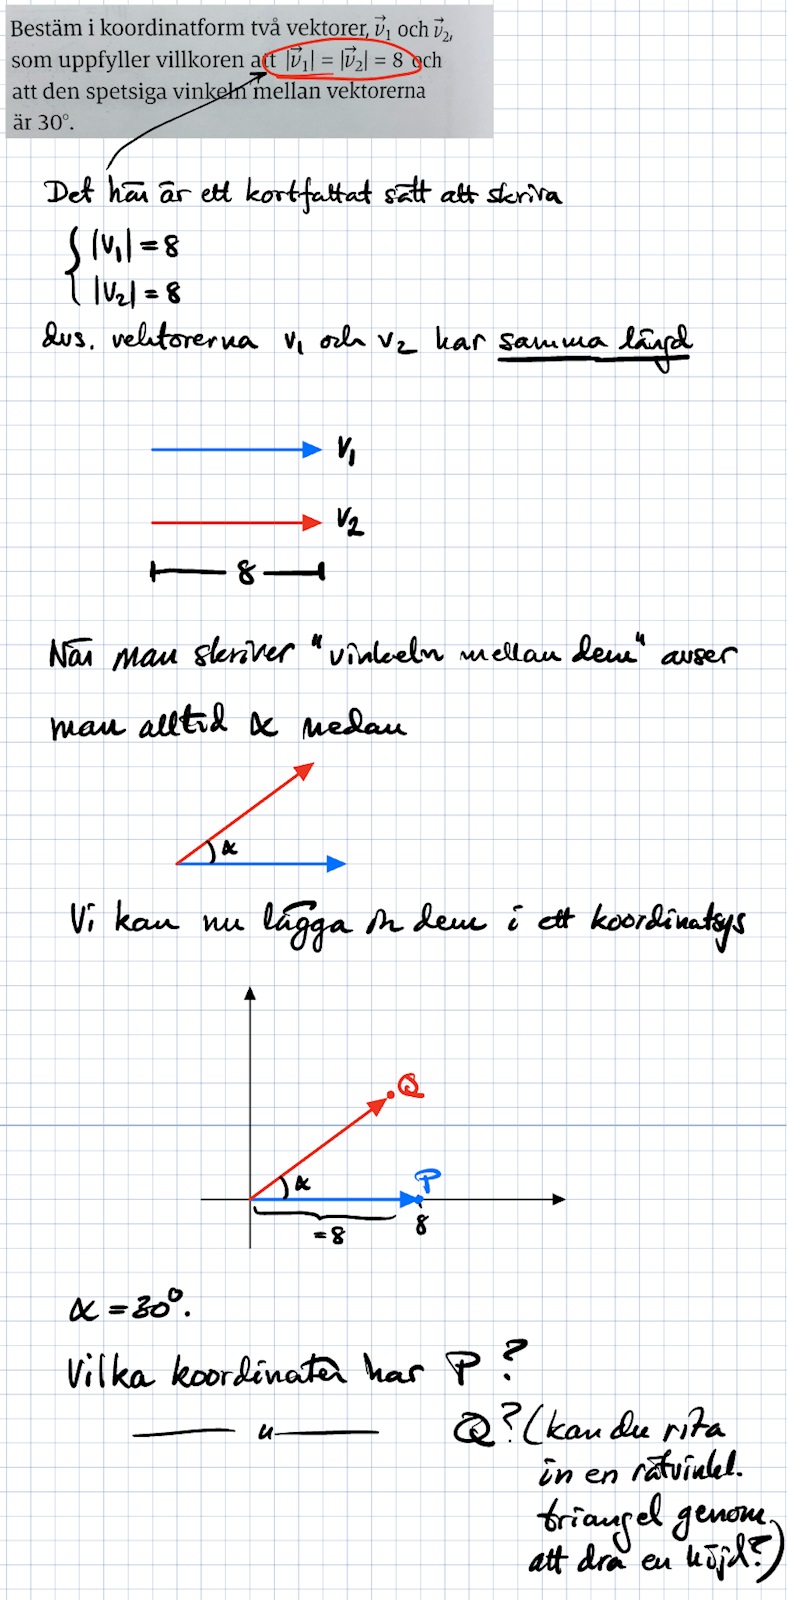 Bestäm i koordinatform två vektorer, v⃗₁ och v⃗₂,
som uppfyller villkoren att |v⃗₁| = |v⃗₂| = 8 och
att den spetsiga vinkeln mellan vektorerna
är 30°.
Det här är ett kortfattat sätt att skriva
|v₁| = 8
|v₂| = 8
dvs. vektorerna v₁ och v₂ har samma längd
v₁
v₂
8
När man skriver "vinkeln mellan dem" avser
man alltid α nedan
α
Vi kan nu lägga in dem i ett koordinatsys
Q
α
P
=8
8
α = 30°.
Vilka koordinater har P?
—— " —— Q? (kan du rita
in en rätvinkl.
triangel genom
att dra en höjd?)